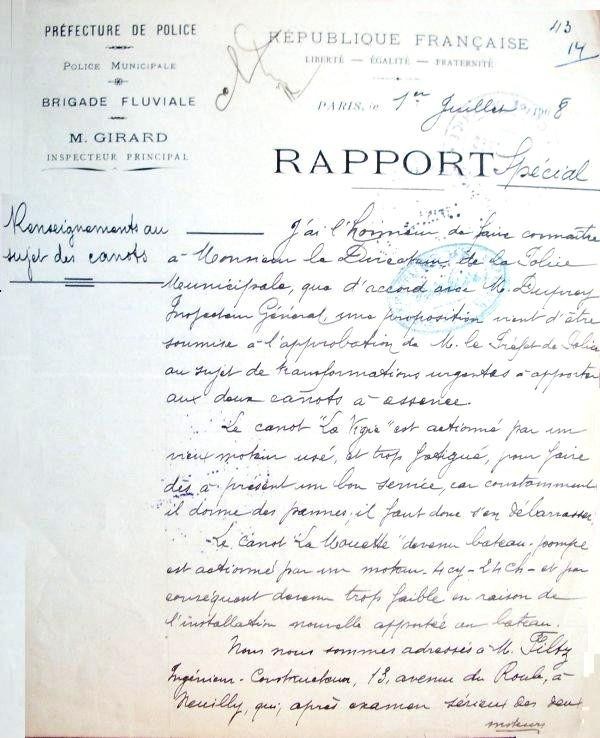 PRÉFECTURE DE POLICE
POLICE MUNICIPALE
BRIGADE FLUVIALE
M. GIRARD
INSPECTEUR PRINCIPAL
RÉPUBLIQUE FRANÇAISE
LIBERTÉ — ÉGALITÉ — FRATERNITÉ
43
14
PARIS, le 1er Juillet 8
RAPPORT Spécial
Renseignements au
sujet des canots
J'ai l'Honneur de faire connaître
à Monsieur le Directeur de la Police
Municipale, que d'accord avec M. Duprey
Inspecteur Général, une proposition vient d'être
soumise à l'approbation de M. le Préfet de Police
au sujet de transformations urgentes à apporter
aux deux canots à essence.
Le canot "La Vigie" est actionné par un
vieux moteur usé, et trop fatigué, pour faire
dès à présent un bon service, car constamment
il donne des pannes; il faut donc s'en débarrasser
Le canot "La Mouette" devenu bateau-pompe
est actionné par un moteur-4cy-24ch-et par
conséquent devenu trop faible en raison de
l'installation nouvelle apportée au bateau.
Nous nous sommes adressés à M. Filtz
Ingénieur-Constructeur, 13, avenue du Roule, à
Neuilly, qui, après examen sérieux des deux
moteurs